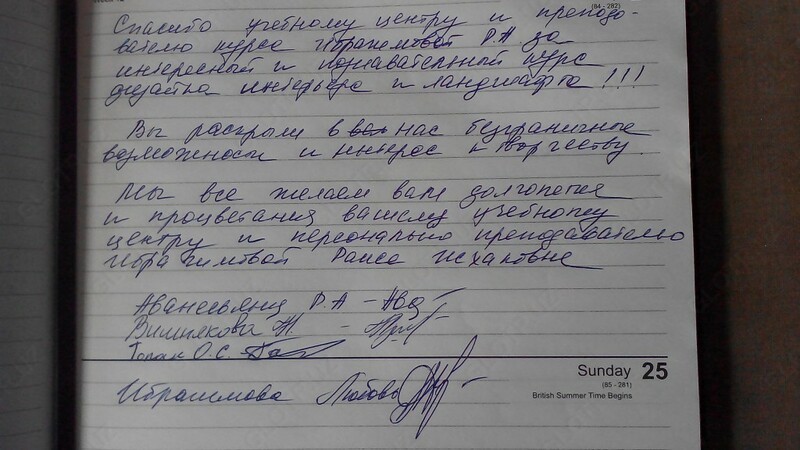 (84 - 282)
Спасибо учебному центру и препода-
вателю курса Ибрагимовой Р.А за
интересный и познавательный курс
дизайна интерьера и ландшафта!!!
Вы раскрыли в нас безграничные
возможности и интерес к творчеству.
Мы все желаем вам долголетия
и процветания вашему учебному
центру и персонально преподавателю
Ибрагимовой Раисе Исхаковне
Аванесьянц Р.А -
Вишнякова Ж. -
О.С.
Sunday 25
(85 - 281)
British Summer Time Begins
Ибрагимова Любовь